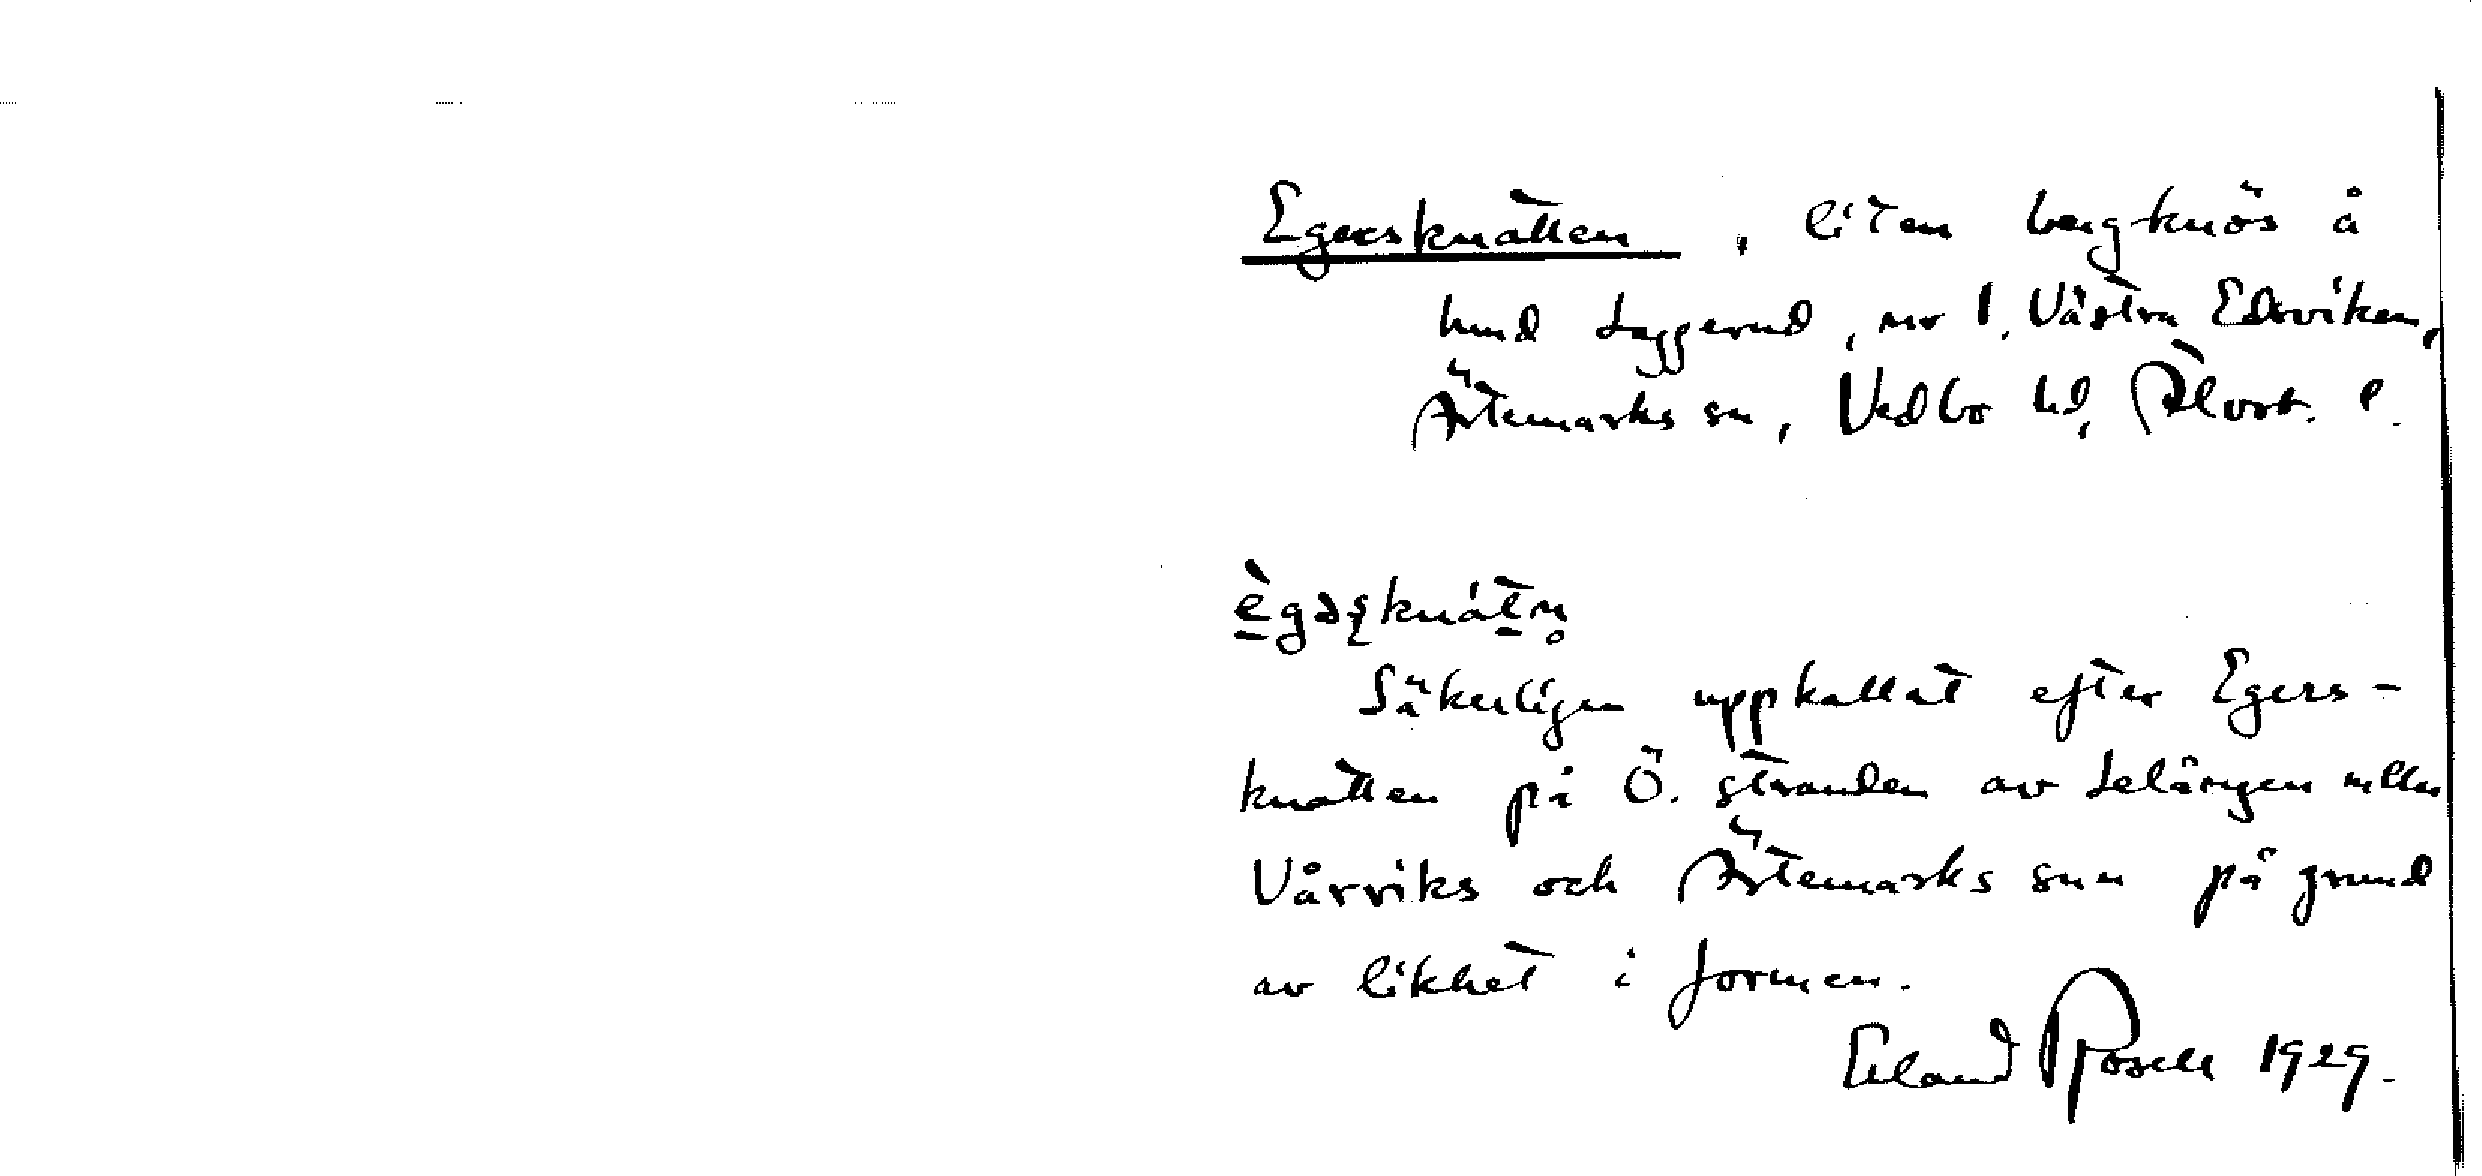 Egersknatten, liten bergknös å
hmd Laggerud, nr 1. Västra Edsviken,
Ärtemarks sn, Vedbo hd, Älvsb. l.
ègəʂknátn̥
Säkerligen uppkallat efter Egers-
knatten på Ö. stranden av Lelången mellan
Vårviks och Ärtemarks snn på grund
av likhet i formen.
Erland Rosell 1929.